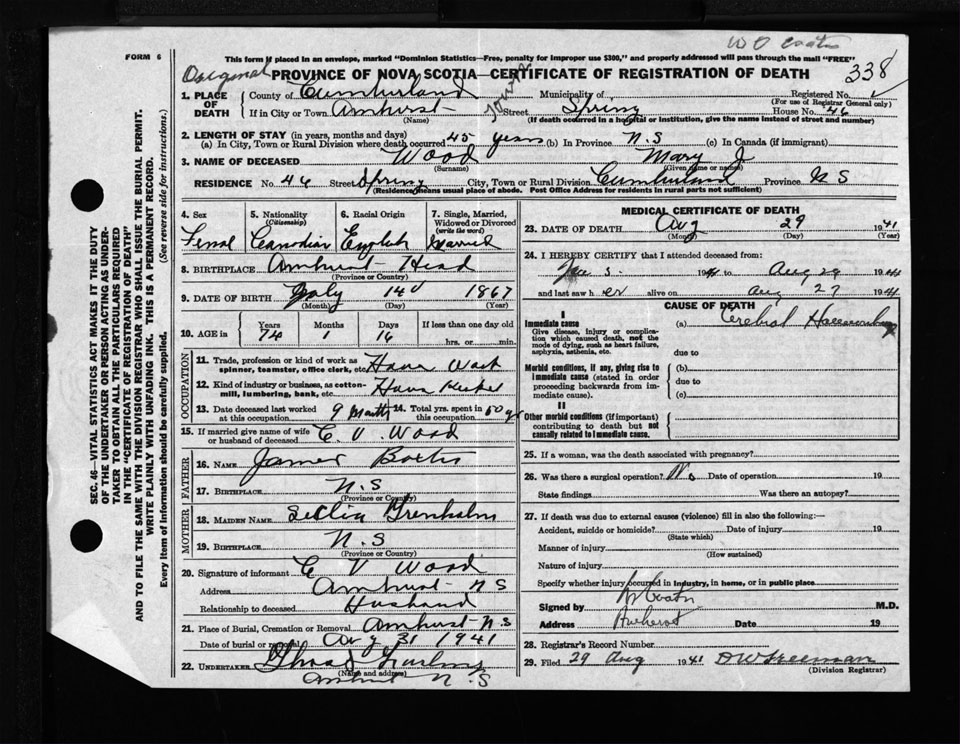 FORM 6
W O Coates
This form if placed in an envelope, marked "Dominion Statistics—Free, penalty for improper use $300," and properly addressed will pass through the mail "FREE"
Original PROVINCE OF NOVA SCOTIA—CERTIFICATE OF REGISTRATION OF DEATH 338
1. PLACE OF DEATH County of Cumberland Municipality of Registered No.
(For use of Registrar General only)
If in City or Town Amherst Town Street Spring House No. 46
(Name) (If death occurred in a hospital or institution, give the name instead of street and number)
2. LENGTH OF STAY (in years, months and days)
(a) In City, Town or Rural Division where death occurred 45 years (b) In Province N.S (c) In Canada (if immigrant)
3. NAME OF DECEASED Wood Mary J
(Surname) (Given name or names)
RESIDENCE No. 46 Street Spring City, Town or Rural Division Cumberland Province N S
(Residence means usual place of abode. Post Office Address for residents in rural parts not sufficient)
4. Sex 5. Nationality (Citizenship) 6. Racial Origin 7. Single, Married, Widowed or Divorced (write the word)
Canadian English Married
8. BIRTHPLACE Amherst Head
(Province or Country)
9. DATE OF BIRTH July 14 1867
(Month) (Day) (Year)
10. AGE in Years Months Days If less than one day old
74 1 16 hrs. or min.
OCCUPATION
11. Trade, profession or kind of work as spinner, teamster, office clerk, etc. House Work
12. Kind of industry or business, as cotton-mill, lumbering, bank, etc. House Keeker
13. Date deceased last worked at this occupation 9 Months 14. Total yrs. spent in this occupation 50 yrs
15. If married give name of wife or husband of deceased C. V. Wood
FATHER
16. NAME James
17. BIRTHPLACE N.S
(Province or Country)
MOTHER
18. MAIDEN NAME Trenholm
19. BIRTHPLACE N.S
(Province or Country)
20. Signature of informant C V Wood
Address Amherst N S
Relationship to deceased Husband
21. Place of Burial, Cremation or Removal Amherst N.S
Date of burial or removal Aug 31 1941
22. UNDERTAKER
(Name and address)
Amherst N.S
MEDICAL CERTIFICATE OF DEATH
23. DATE OF DEATH Aug 29 1941
(Month) (Day) (Year)
24. I HEREBY CERTIFY that I attended deceased from:
3 1941 to Aug 29 1941
and last saw h er alive on Aug 27 1941
CAUSE OF DEATH
I
Immediate cause (a) Cerebral Haemorrhage
Give disease, injury or complication which caused death, not the mode of dying, such as heart failure, asphyxia, asthenia, etc.
due to
Morbid conditions, if any, giving rise to immediate cause (stated in order proceeding backwards from immediate cause). (b)
due to
(c)
II
Other morbid conditions (if important) contributing to death but not causally related to immediate cause.
25. If a woman, was the death associated with pregnancy?
26. Was there a surgical operation? No Date of operation 19
State findings Was there an autopsy?
27. If death was due to external causes (violence) fill in also the following:—
Accident, suicide or homicide? Date of injury 19
(State which)
Manner of injury
(How sustained)
Nature of injury
Specify whether injury occurred in industry, in home, or in public place
Signed by Coates M.D.
Address Amherst Date 19
28. Registrar's Record Number
29. Filed 29 Aug 1941 D W Freeman
(Division Registrar)
SEC. 46—VITAL STATISTICS ACT MAKES IT THE DUTY
OF THE UNDERTAKER OR PERSON ACTING AS UNDER-
TAKER TO OBTAIN ALL THE PARTICULARS REQUIRED
IN THE "CERTIFICATE OF REGISTRATION OF DEATH"
AND TO FILE THE SAME WITH THE DIVISION REGISTRAR WHO SHALL ISSUE THE BURIAL PERMIT.
WRITE PLAINLY WITH UNFADING INK. THIS IS A PERMANENT RECORD.
Every item of information should be carefully supplied. (See reverse side for instructions.)